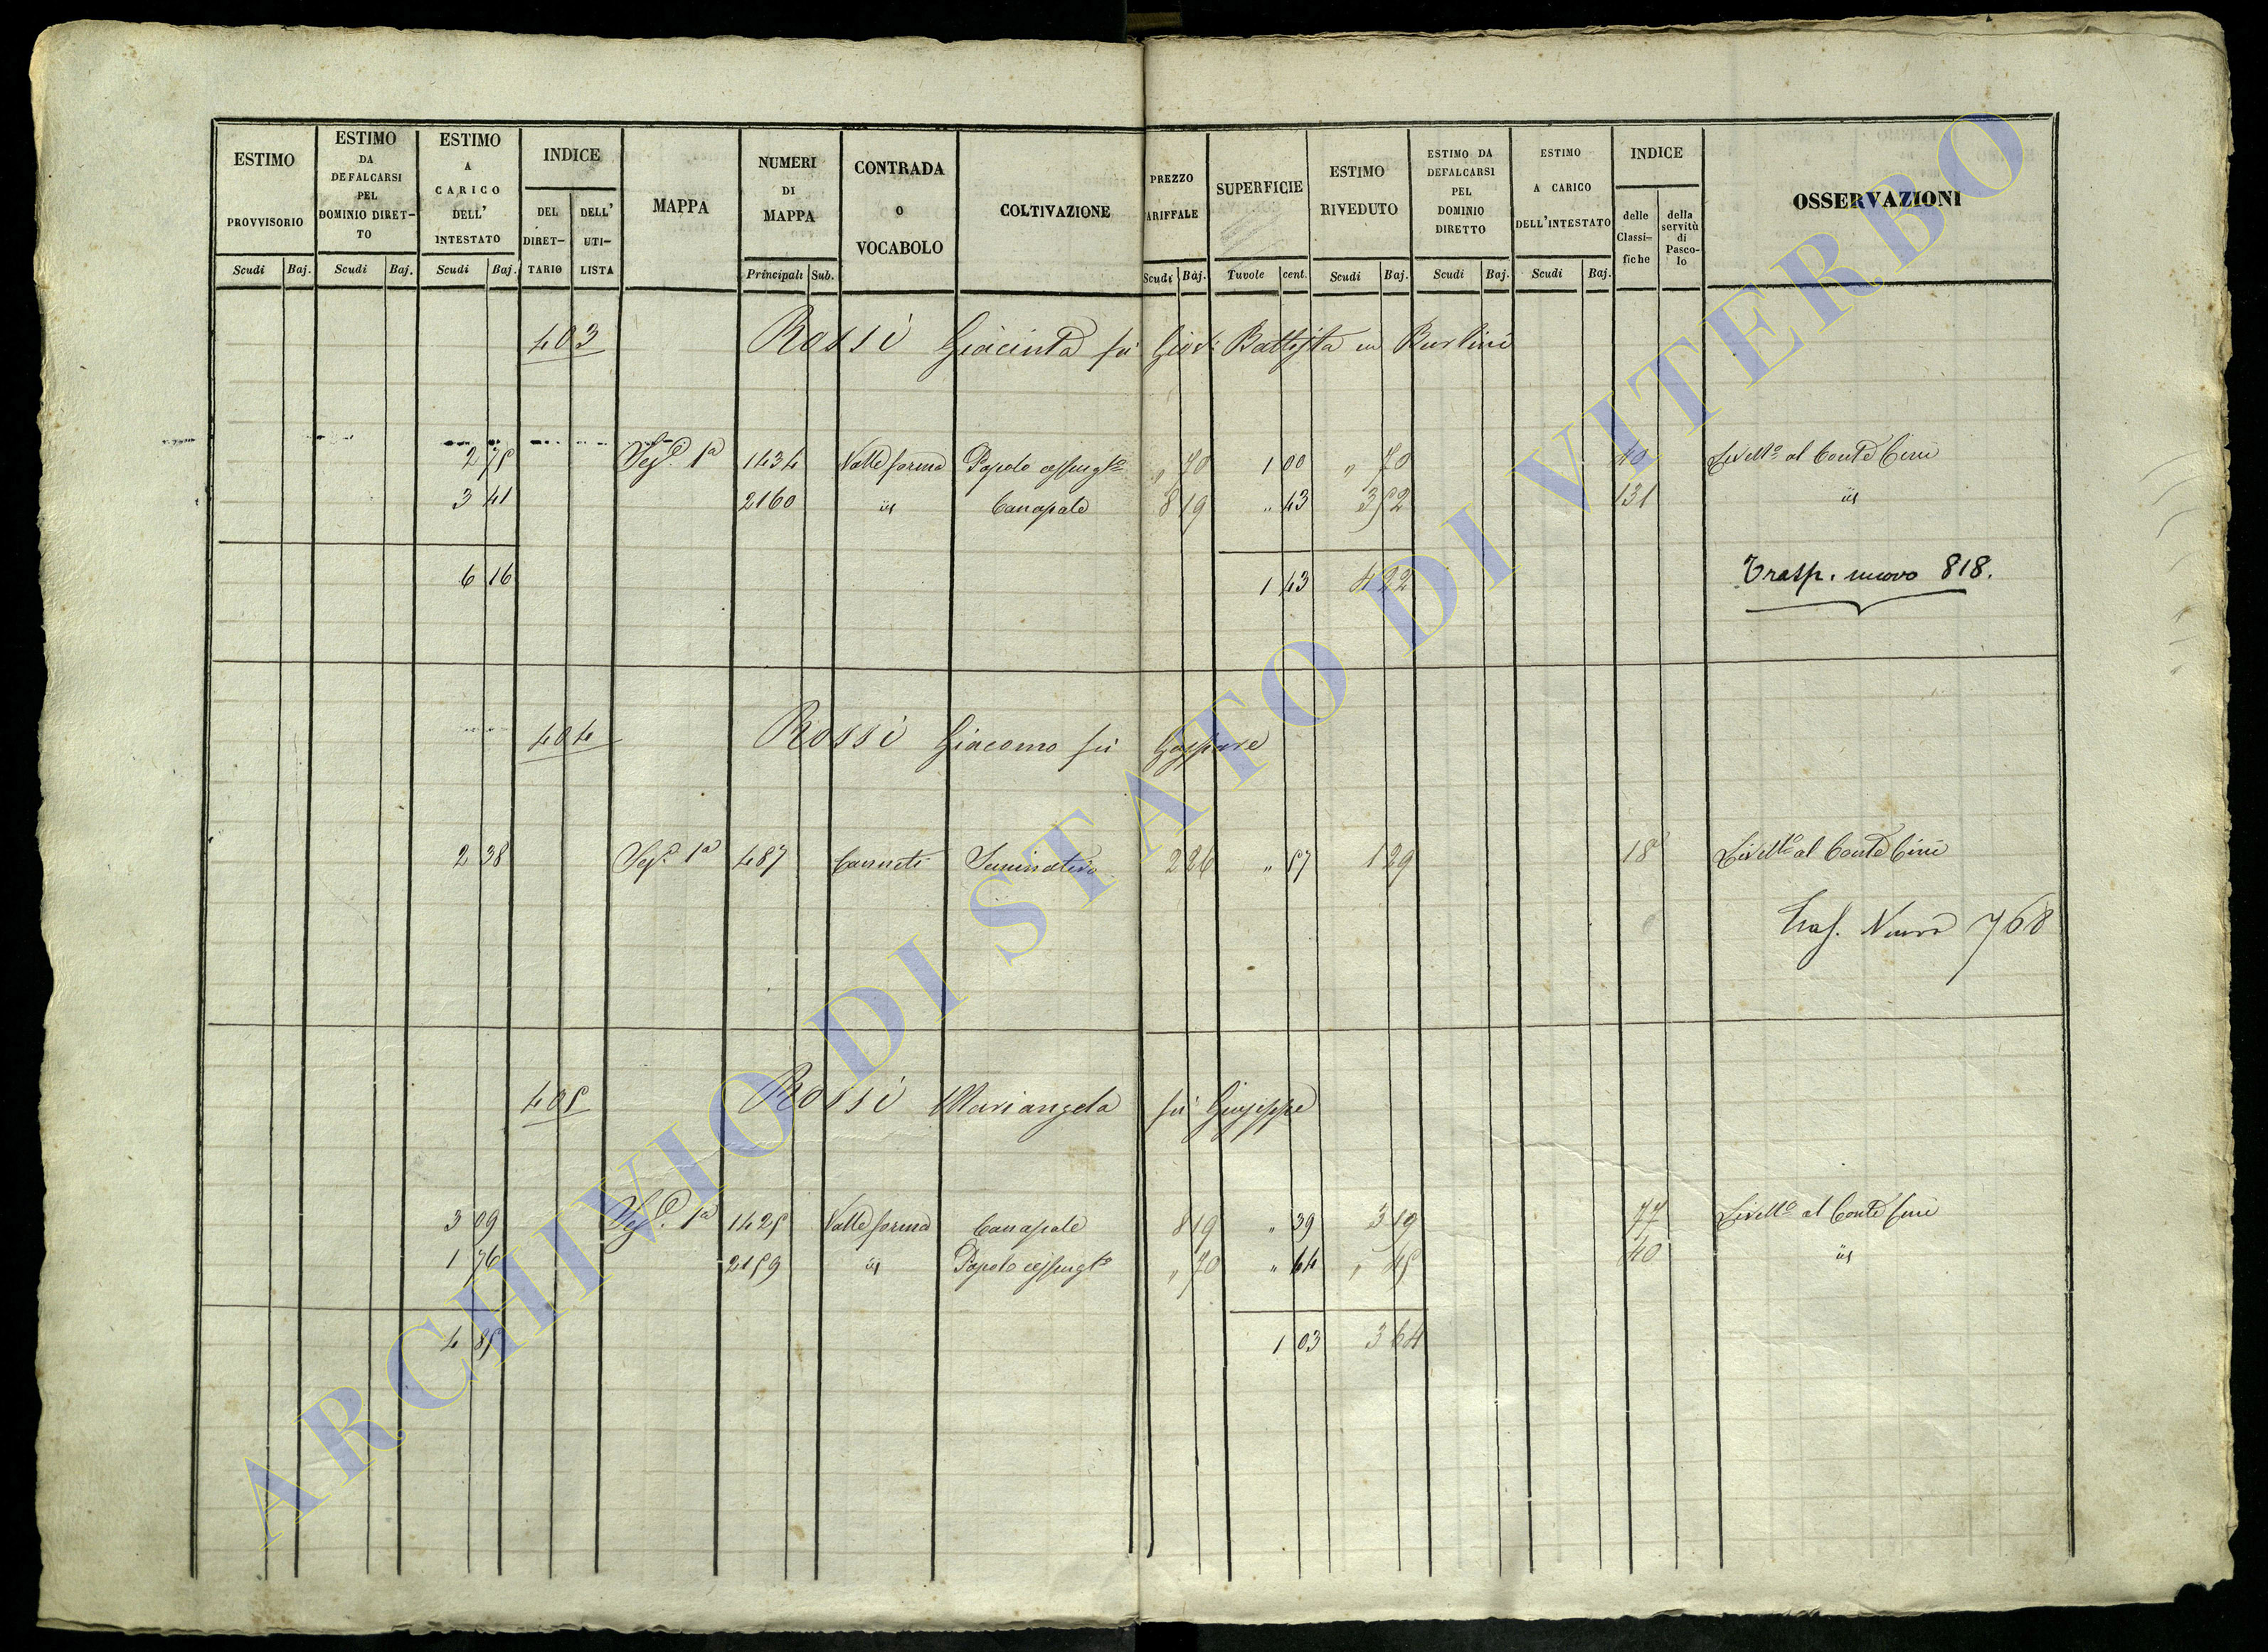 ESTIMO PROVVISORIO
Scudi Baj.
ESTIMO DA DEFALCARSI PEL DOMINIO DIRET-TO
Scudi Baj.
ESTIMO A CARICO DELL' INTESTATO
Scudi Baj.
INDICE
DEL DIRET-TARIO
DELL' UTI-LISTA
MAPPA
NUMERI DI MAPPA
Principali Sub.
CONTRADA O VOCABOLO
COLTIVAZIONE
PREZZO ARIFFALE
Scudi Baj.
SUPERFICIE
Tavole cent.
ESTIMO RIVEDUTO
Scudi Baj.
ESTIMO DA DEFALCARSI PEL DOMINIO DIRETTO
Scudi Baj.
ESTIMO A CARICO DELL'INTESTATO
Scudi Baj.
INDICE
delle Classi-fiche
della servitù di Pasco-lo
OSSERVAZIONI
403 Rossi Giacinta fu Giov: Battista in Burlini
2 75 1a 1434 Valle forma " 70 1 00 " 70 40 Livell.o al Conte Cini
3 41 2160 id Canapale 8 19 " 43 3 52 131 id
6 16 1 43 4 22 Trasp. nuovo 818.
404 Rossi Giacomo fu Gaspare
2 38 1a 487 Canneti Seminativo 2 26 " 57 1 29 18 Livell.o al Conte Cini
Tras. Nuovo 768
405 Rossi Mariangela fu Giuseppe
3 09 1a 1425 Valle forma Canapale 8 19 " 39 3 19 77 Livell.o al Conte Cini
1 76 2159 id " 70 " 64 " 45 40 id
4 85 1 03 3 64
ARCHIVIO DI STATO DI VITERBO